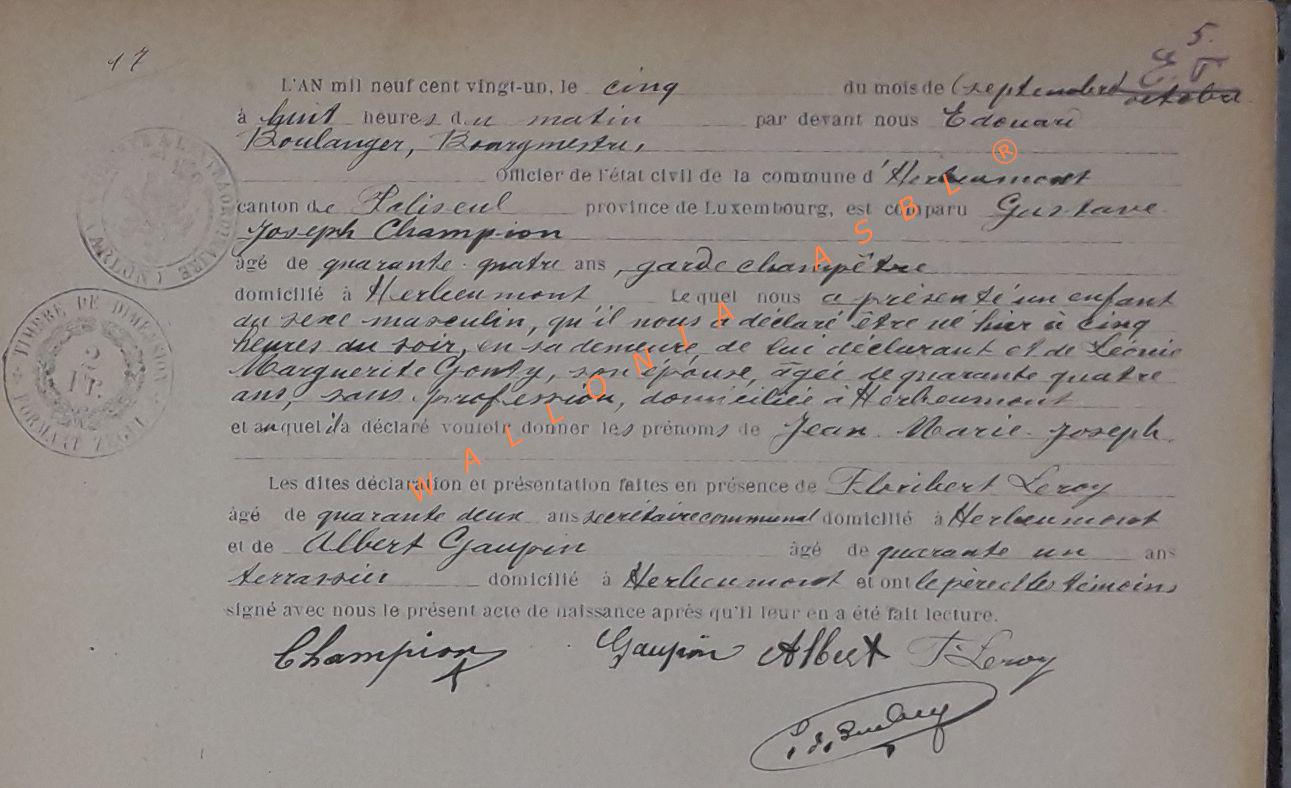 17
5.
L'AN mil neuf cent vingt-un, le cinq du mois de septembre octobre
à huit heures du matin par devant nous Edouard
Boulanger, Bourgmestre,
Officier de l'état civil de la commune d'Herbeumont
canton de Paliseul province de Luxembourg, est comparu Gustave
Joseph Champion
âgé de quarante-quatre ans, garde champêtre
domicilié à Herbeumont Lequel nous a présenté un enfant
du sexe masculin, qu'il nous a déclaré être né hier à cinq
heures du soir, en sa demeure, de lui déclarant et de Léonie
Marguerite Gonty, son épouse, agée de quarante quatre
ans, sans profession, domiciliée à Herbeumont
et auquel il a déclaré vouloir donner les prénoms de Jean-Marie-Joseph.
Les dites déclaration et présentation faites en présence de Floribert Leroy
âgé de quarante deux ans secrétaire communal domicilié à Herbeumont
et de Albert Gaupin âgé de quarante un ans
terrassier domicilié à Herbeumont et ont le père et les témoins
signé avec nous le présent acte de naissance après qu'il leur en a été fait lecture.
Champion Gaupin Albert F. Leroy
TIMBRE DE DIMENSION
2 FR.
WALLONIA ASBL ®